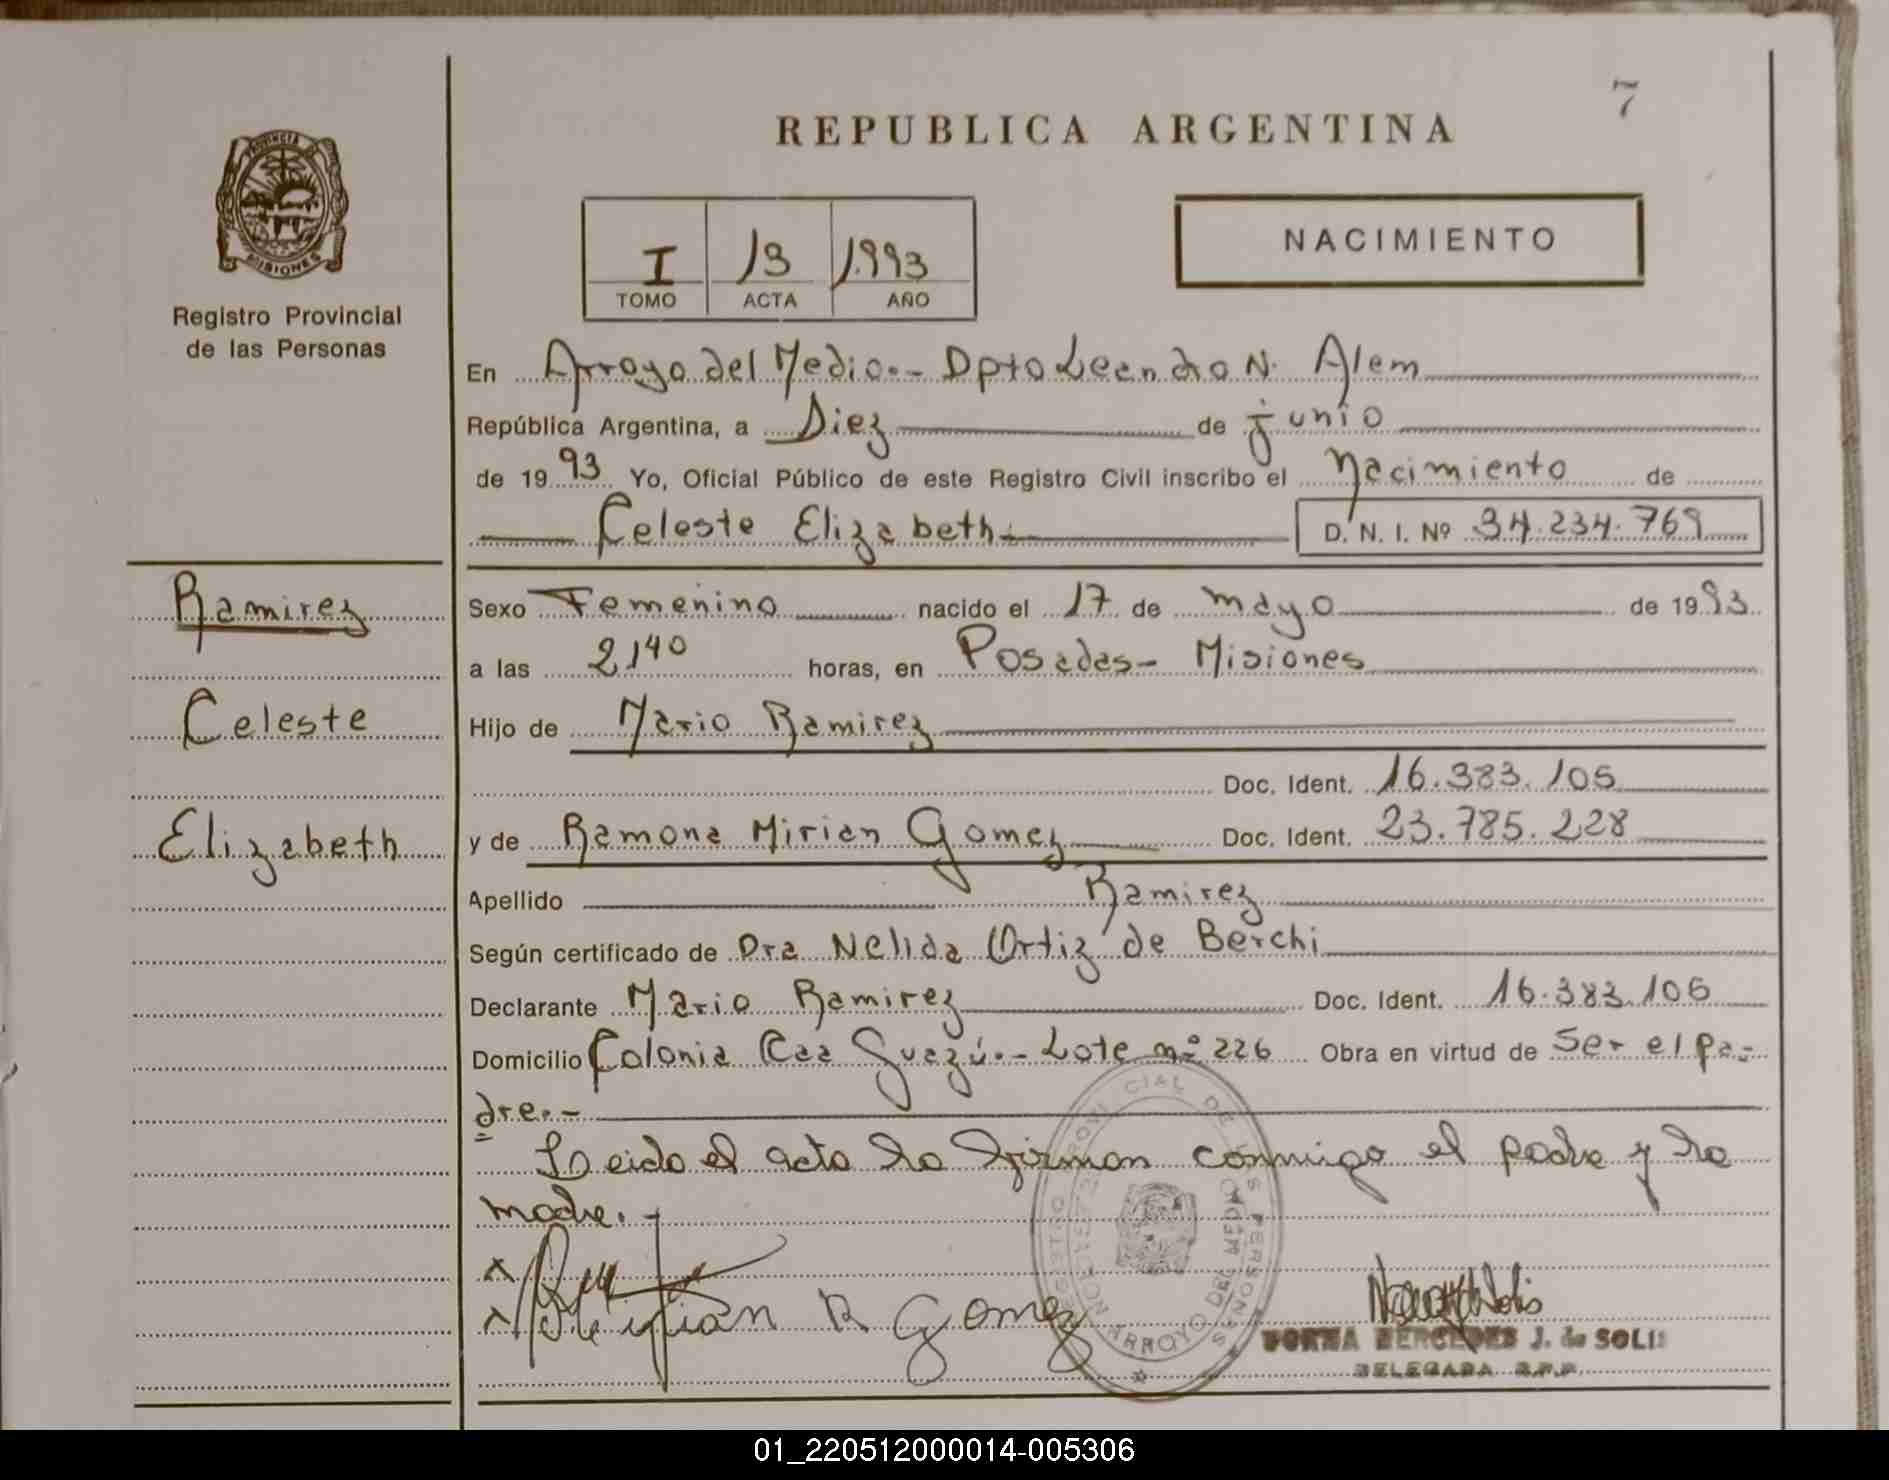 7
REPUBLICA ARGENTINA
PROVINCIA DE
MISIONES
Registro Provincial
de las Personas
I 13 1.993
TOMO ACTA AÑO
NACIMIENTO
En Arroyo del Medio.- Dpto Leandro N. Alem
República Argentina, a Diez de junio
de 1993 Yo, Oficial Público de este Registro Civil inscribo el Nacimiento de
Celeste Elizabeth.- D. N. I. Nº 34.234.769
Ramirez
Sexo Femenino nacido el 17 de mayo de 1993
a las 2140 horas, en Posadas- Misiones
Celeste
Hijo de Mario Ramirez
Doc. Ident. 16.383.106
Elizabeth
y de Ramona Mirian Gomez Doc. Ident. 23.785.228
Apellido Ramirez
Según certificado de Dra Nelida Ortiz de Berchi
Declarante Mario Ramirez Doc. Ident. 16.383.106
Domicilio Colonia Caa Guazú.- Lote nº 226 Obra en virtud de Ser el pa-
dre.-
Leida el acta la firman conmigo el padre y la
madre.-
R Gomez
REGISTRO PROVINCIAL DE LAS PERSONAS
ARROYO DEL MEDIO
MERCEDES J. de SOLIS
DELEGADA R.P.P.
01_220512000014-005306